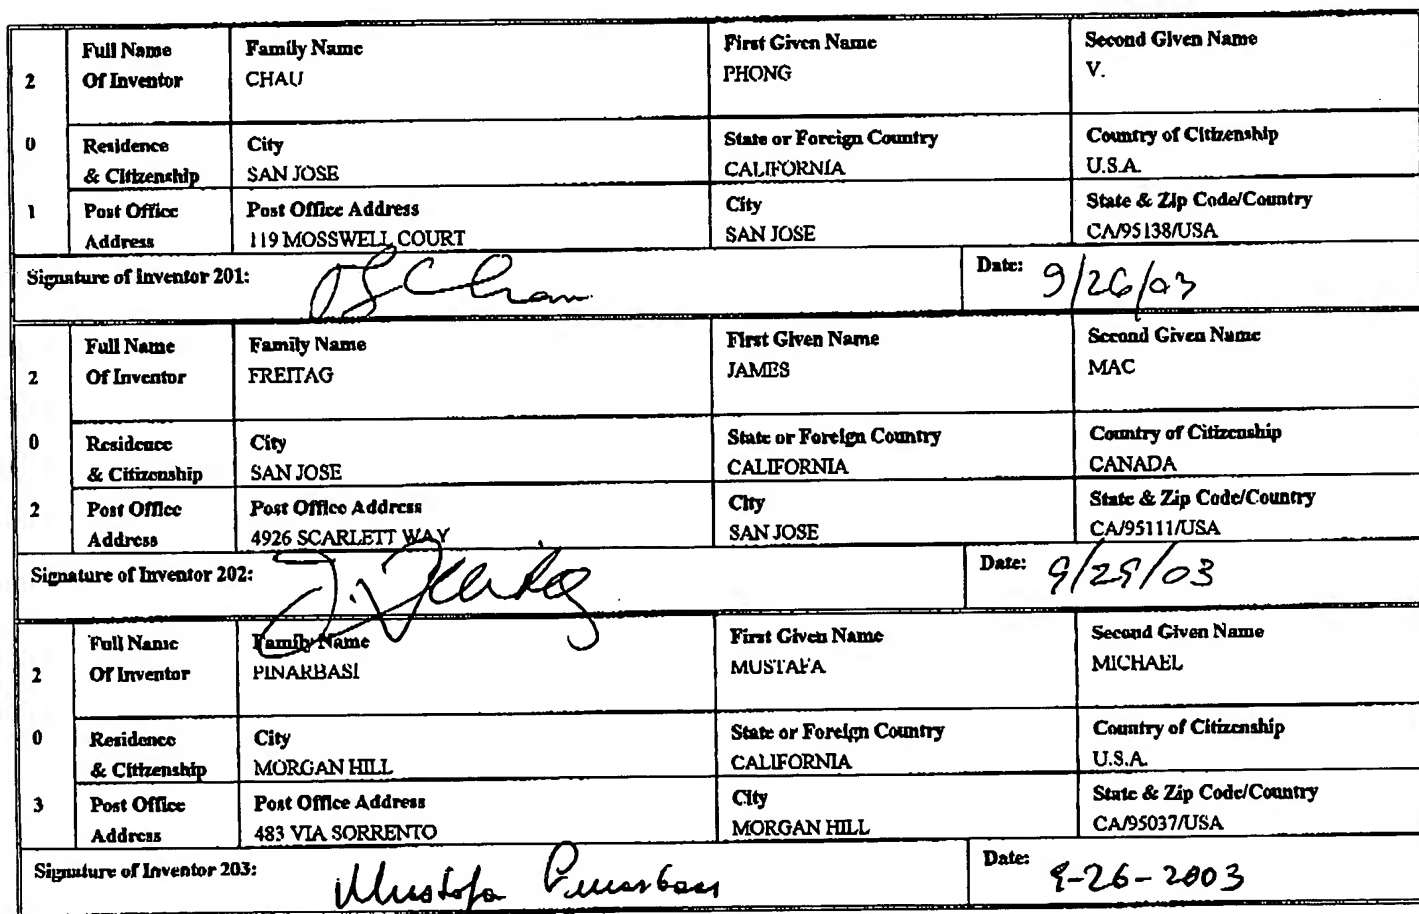 2 0 1
Full Name Of Inventor
Family Name
CHAU
First Given Name
PHONG
Second Given Name
V.
Residence & Citizenship
City
SAN JOSE
State or Foreign Country
CALIFORNIA
Country of Citizenship
U.S.A.
Post Office Address
Post Office Address
119 MOSSWELL COURT
City
SAN JOSE
State & Zip Code/Country
CA/95138/USA
Signature of Inventor 201:
Date: 9/26/03
2 0 2
Full Name Of Inventor
Family Name
FREITAG
First Given Name
JAMES
Second Given Name
MAC
Residence & Citizenship
City
SAN JOSE
State or Foreign Country
CALIFORNIA
Country of Citizenship
CANADA
Post Office Address
Post Office Address
4926 SCARLETT WAY
City
SAN JOSE
State & Zip Code/Country
CA/95111/USA
Signature of Inventor 202: J. Freitag
Date: 9/29/03
2 0 3
Full Name Of Inventor
Family Name
PINARBASI
First Given Name
MUSTAFA
Second Given Name
MICHAEL
Residence & Citizenship
City
MORGAN HILL
State or Foreign Country
CALIFORNIA
Country of Citizenship
U.S.A.
Post Office Address
Post Office Address
483 VIA SORRENTO
City
MORGAN HILL
State & Zip Code/Country
CA/95037/USA
Signature of Inventor 203: Mustafa Pinarbasi
Date: 9-26-2003